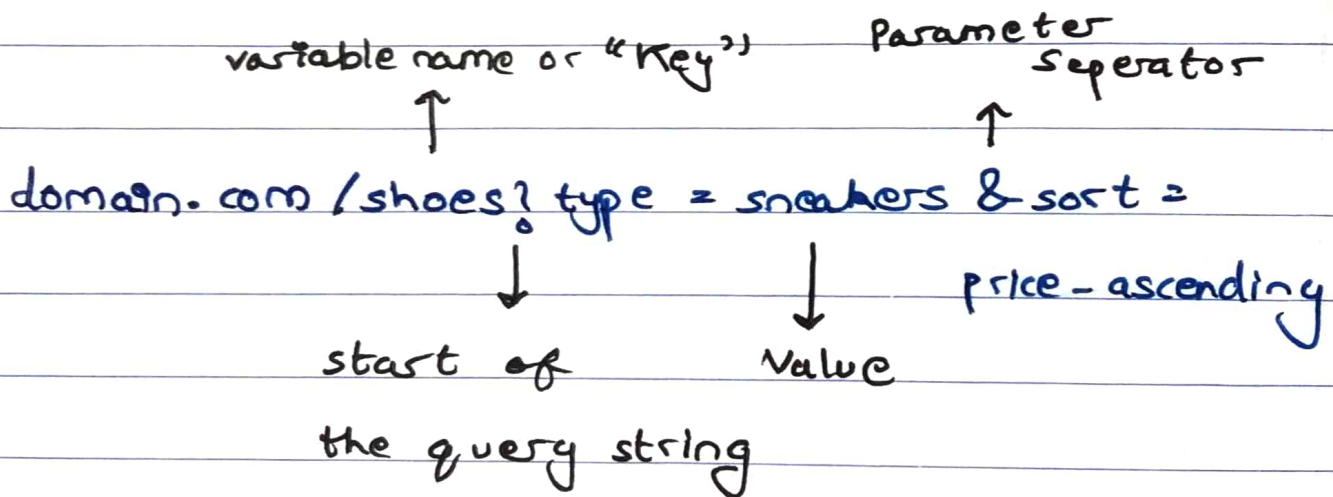 variable name or "Key"
Parameter
Seperator
domain.com /shoes? type = sneakers & sort =
price-ascending
start of
the query string
Value